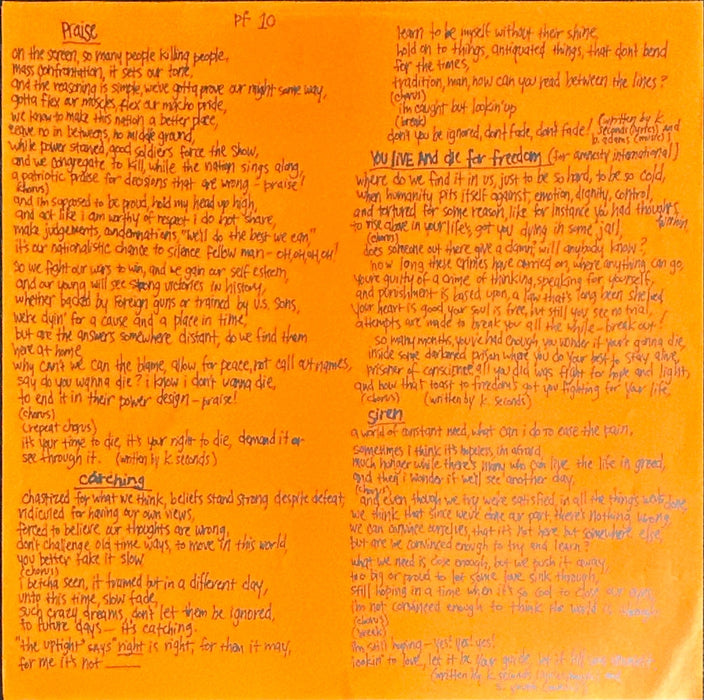 PF 10
Praise
on the screen, so many people killing people,
mass confrontation, it sets our tone,
and the reasoning is simple, we've gotta prove our might some way,
gotta flex our muscles, flex our macho pride,
we know to make this nation a better place,
leave no in betweens, no middle ground,
while power starved, good soldiers force the show,
and we congregate to kill, while the nation sings along,
a patriotic praise for decisions that are wrong - praise!
(chorus)
and i'm supposed to be proud, hold my head up high,
and act like i am worthy of respect i do not share,
make judgements, condemnations, "we'll do the best we can"
it's our nationalistic chance to silence fellow man - OH, OH, OH, OH!
so we fight our wars to win, and we gain our self esteem,
and our young will see strong victories in history,
whether backed by foreign guns or trained by u.s. sons,
we're dyin' for a cause and a place in time,
but are the answers somewhere distant, do we find them
here at home
why can't we can the blame, allow for peace, not call out names,
say do you wanna die? i know i don't wanna die,
to end it in their power design - praise!
(chorus)
(repeat chorus)
it's your time to die, it's your right to die, demand it or
see through it. (written by k. seconds)
catching
chastized for what we think, beliefs stand strong despite defeat,
ridiculed for having our own views,
forced to believe our thoughts are wrong,
don't challenge old time ways, to move in this world,
you better take it slow
(chorus)
i betcha seen, it framed but in a different day,
unto this time, slow fade,
such crazy dreams, don't let them be ignored,
to future days - it's catching.
"the uptight" says "right is right, for than it may,
for me it's not
learn to be myself without their shine,
hold on to things, antiquated things, that don't bend
for the times,
tradition, man, how can you read between the lines?
(chorus)
i'm caught but lookin' up
(break)
don't you be ignored, don't fade, don't fade! (written by k. seconds (lyrics) and b. adams (music))
you live and die for freedom (for amnesty international)
where do we find it in us, just to be so hard, to be so cold,
when humanity pits itself against, emotion, dignity, control,
and tortured for some reason, like for instance you had thoughts within,
to rise above in your life's got you dying in some jail,
(chorus)
does someone out there give a damn, will anybody know?
how long these crimes have carried on, where anything can go,
you're guilty of a crime of thinking, speaking for yourself,
and punishment is based upon, a law that's long been shelved
your heart is good your soul is free, but still you see no trial,
attempts are made to break you all the while - break out!
so many months, you've had enough you wonder if you're gonna die,
inside some darkened prison where you do your best to stay alive,
prisoner of conscience, all you did was fight for hope and light,
and how that toast to freedom's got you fighting for your life,
(chorus) (written by k. seconds)
siren
a world of constant need, what can i do to ease the pain,
sometimes i think it's hopeless, i'm afraid
much hunger while there's many who can live the life in greed,
and then i wonder if we'll see another day,
(chorus)
and even though we try we're satisfied, in all the things we've done,
we think that since we've done our part there's nothing wrong
we can convince ourselves, that it's not here but somewhere else,
but are we convinced enough to try and learn?
what we need is close enough, but we push it away,
too big or proud to let some love sink through,
still hoping in a time when it's so cool to close our eyes,
i'm not convinced enough to think the world is
(chorus)
(break)
i'm still hoping - yes! yes! yes!
lookin' to love, let it be your guide, let it
(written by k. seconds